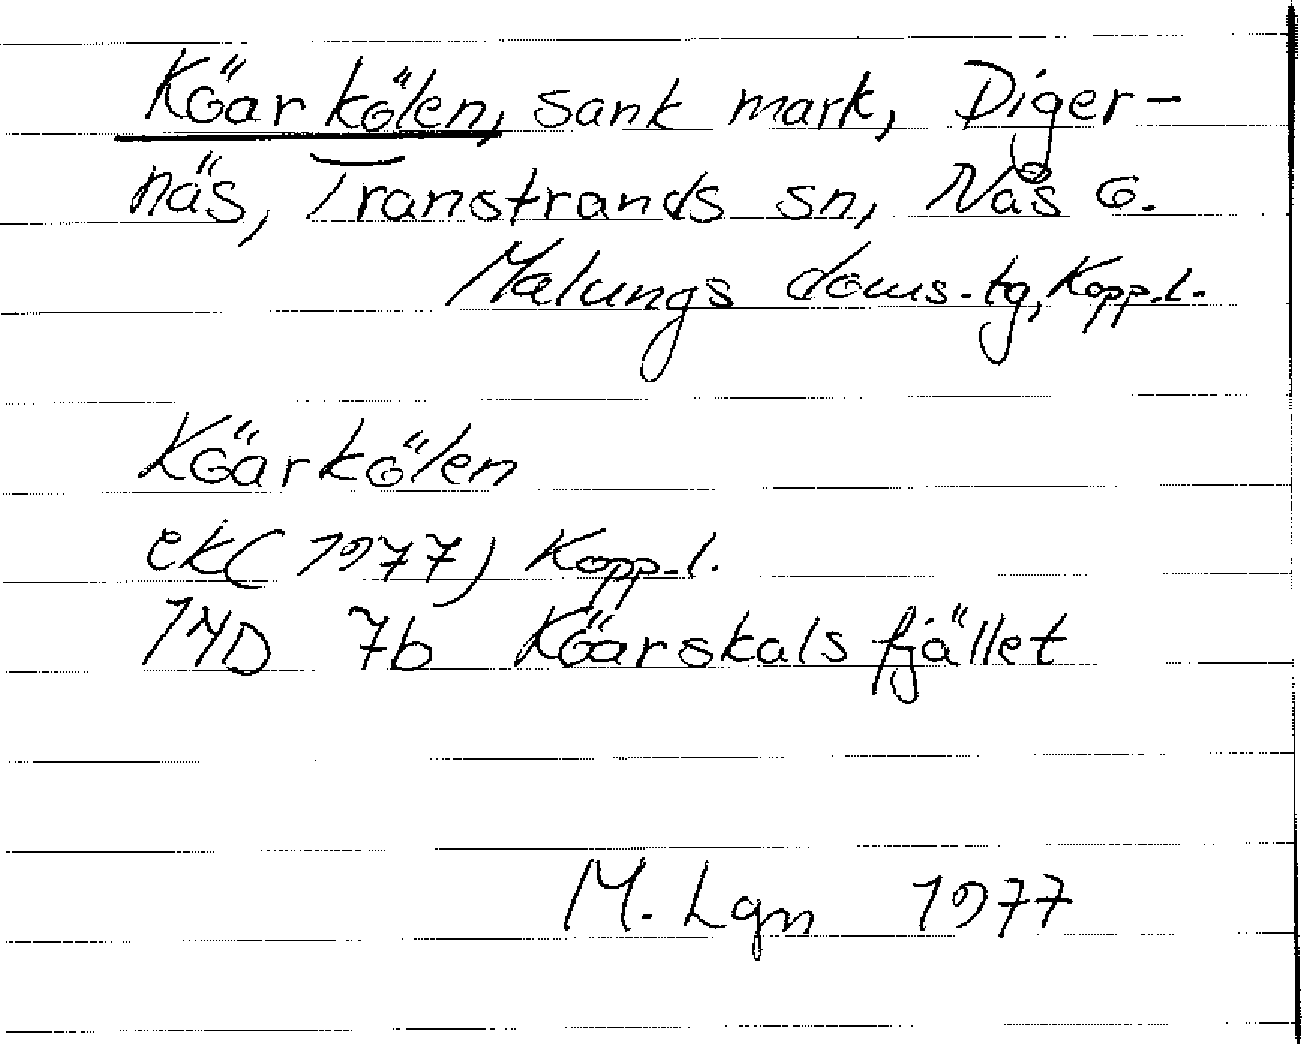 Köarkölen, sank mark, Diger-
näs, Transtrands sn, Nås o.
Malungs doms.tg, Kopp.l.
Köarkölen
ek (1977) Kopp.l.
14D 7b Köarskalsfjället
M. Lgn 1977